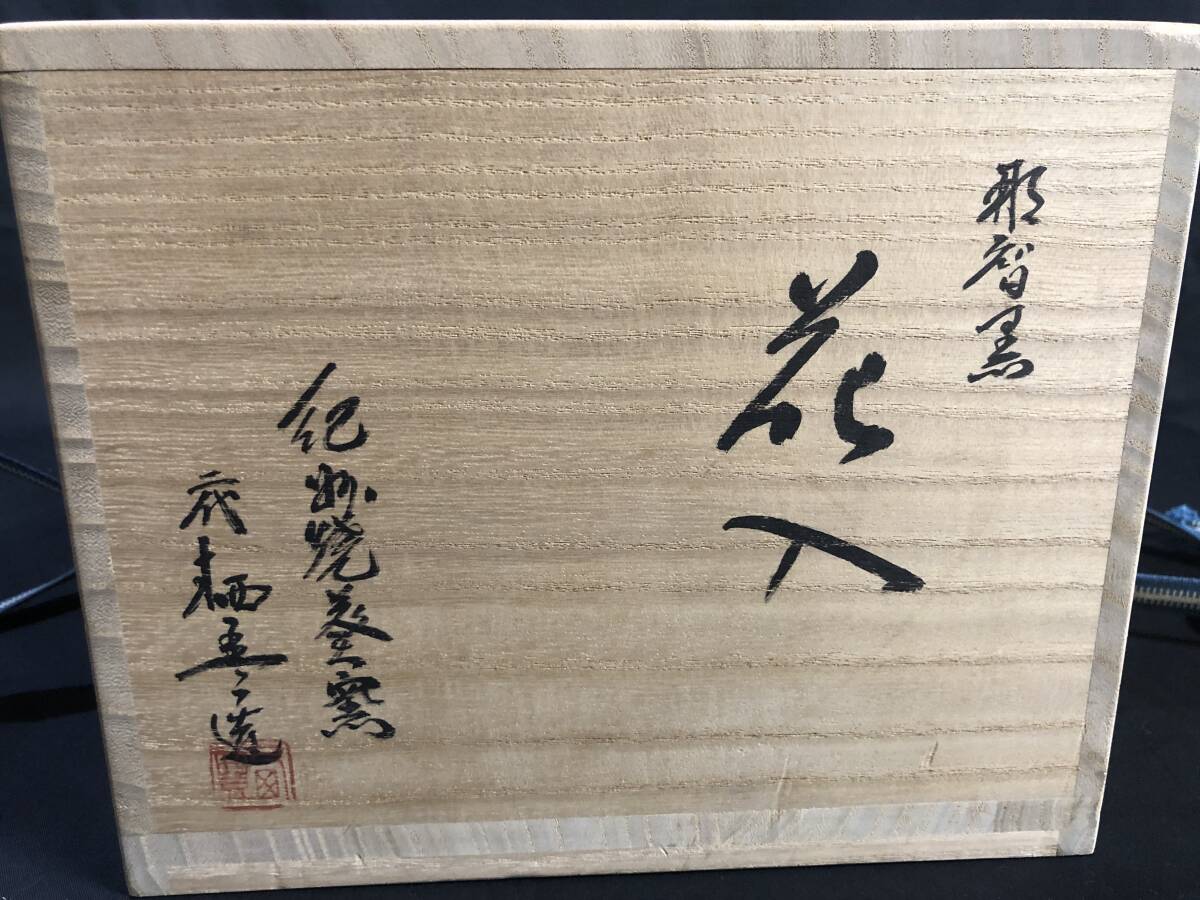 那智黒
花入
紀州焼葵窯
二代 栖豊二造